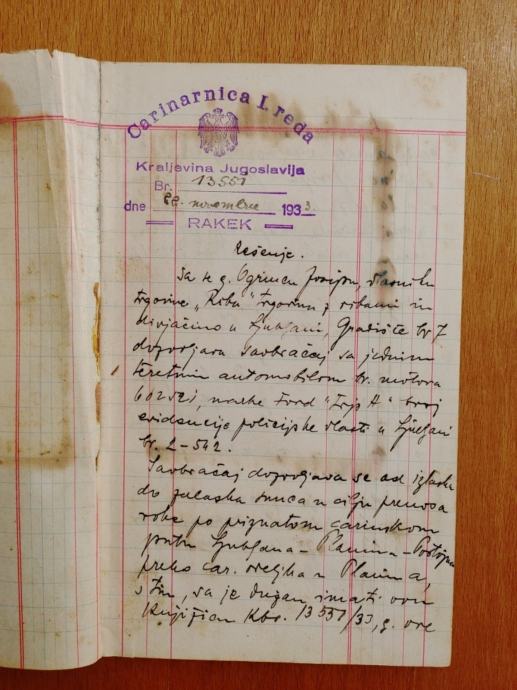 Carinarnica I. reda
Kraljevina Jugoslavija
Br. 13551
dne 22. novembra 1933.
RAKEK
Rešenje.
Da se g. Ogrincu Josipu, vlasniku
trgovine „Riba" trgovina z ribami in
divjačino u Ljubljani, Gradišče br 7
dozvoljava saobraćaj sa jednim
teretnim automobilom br. motora
marke Ford "Tip A" broj
evidencije policijske vlasti u Ljubljani
br. 2-542.
Saobraćaj dozvoljava se od izlaska
do zalaska sunca u cilju prenosa
robe po priznatom carinskom
putu Ljubljana - Planina - Postojna
preko car. odeljka u Planina,
s tim, da je dužan imati ovu
knjižicu Kbr. 13551/33, g. ove